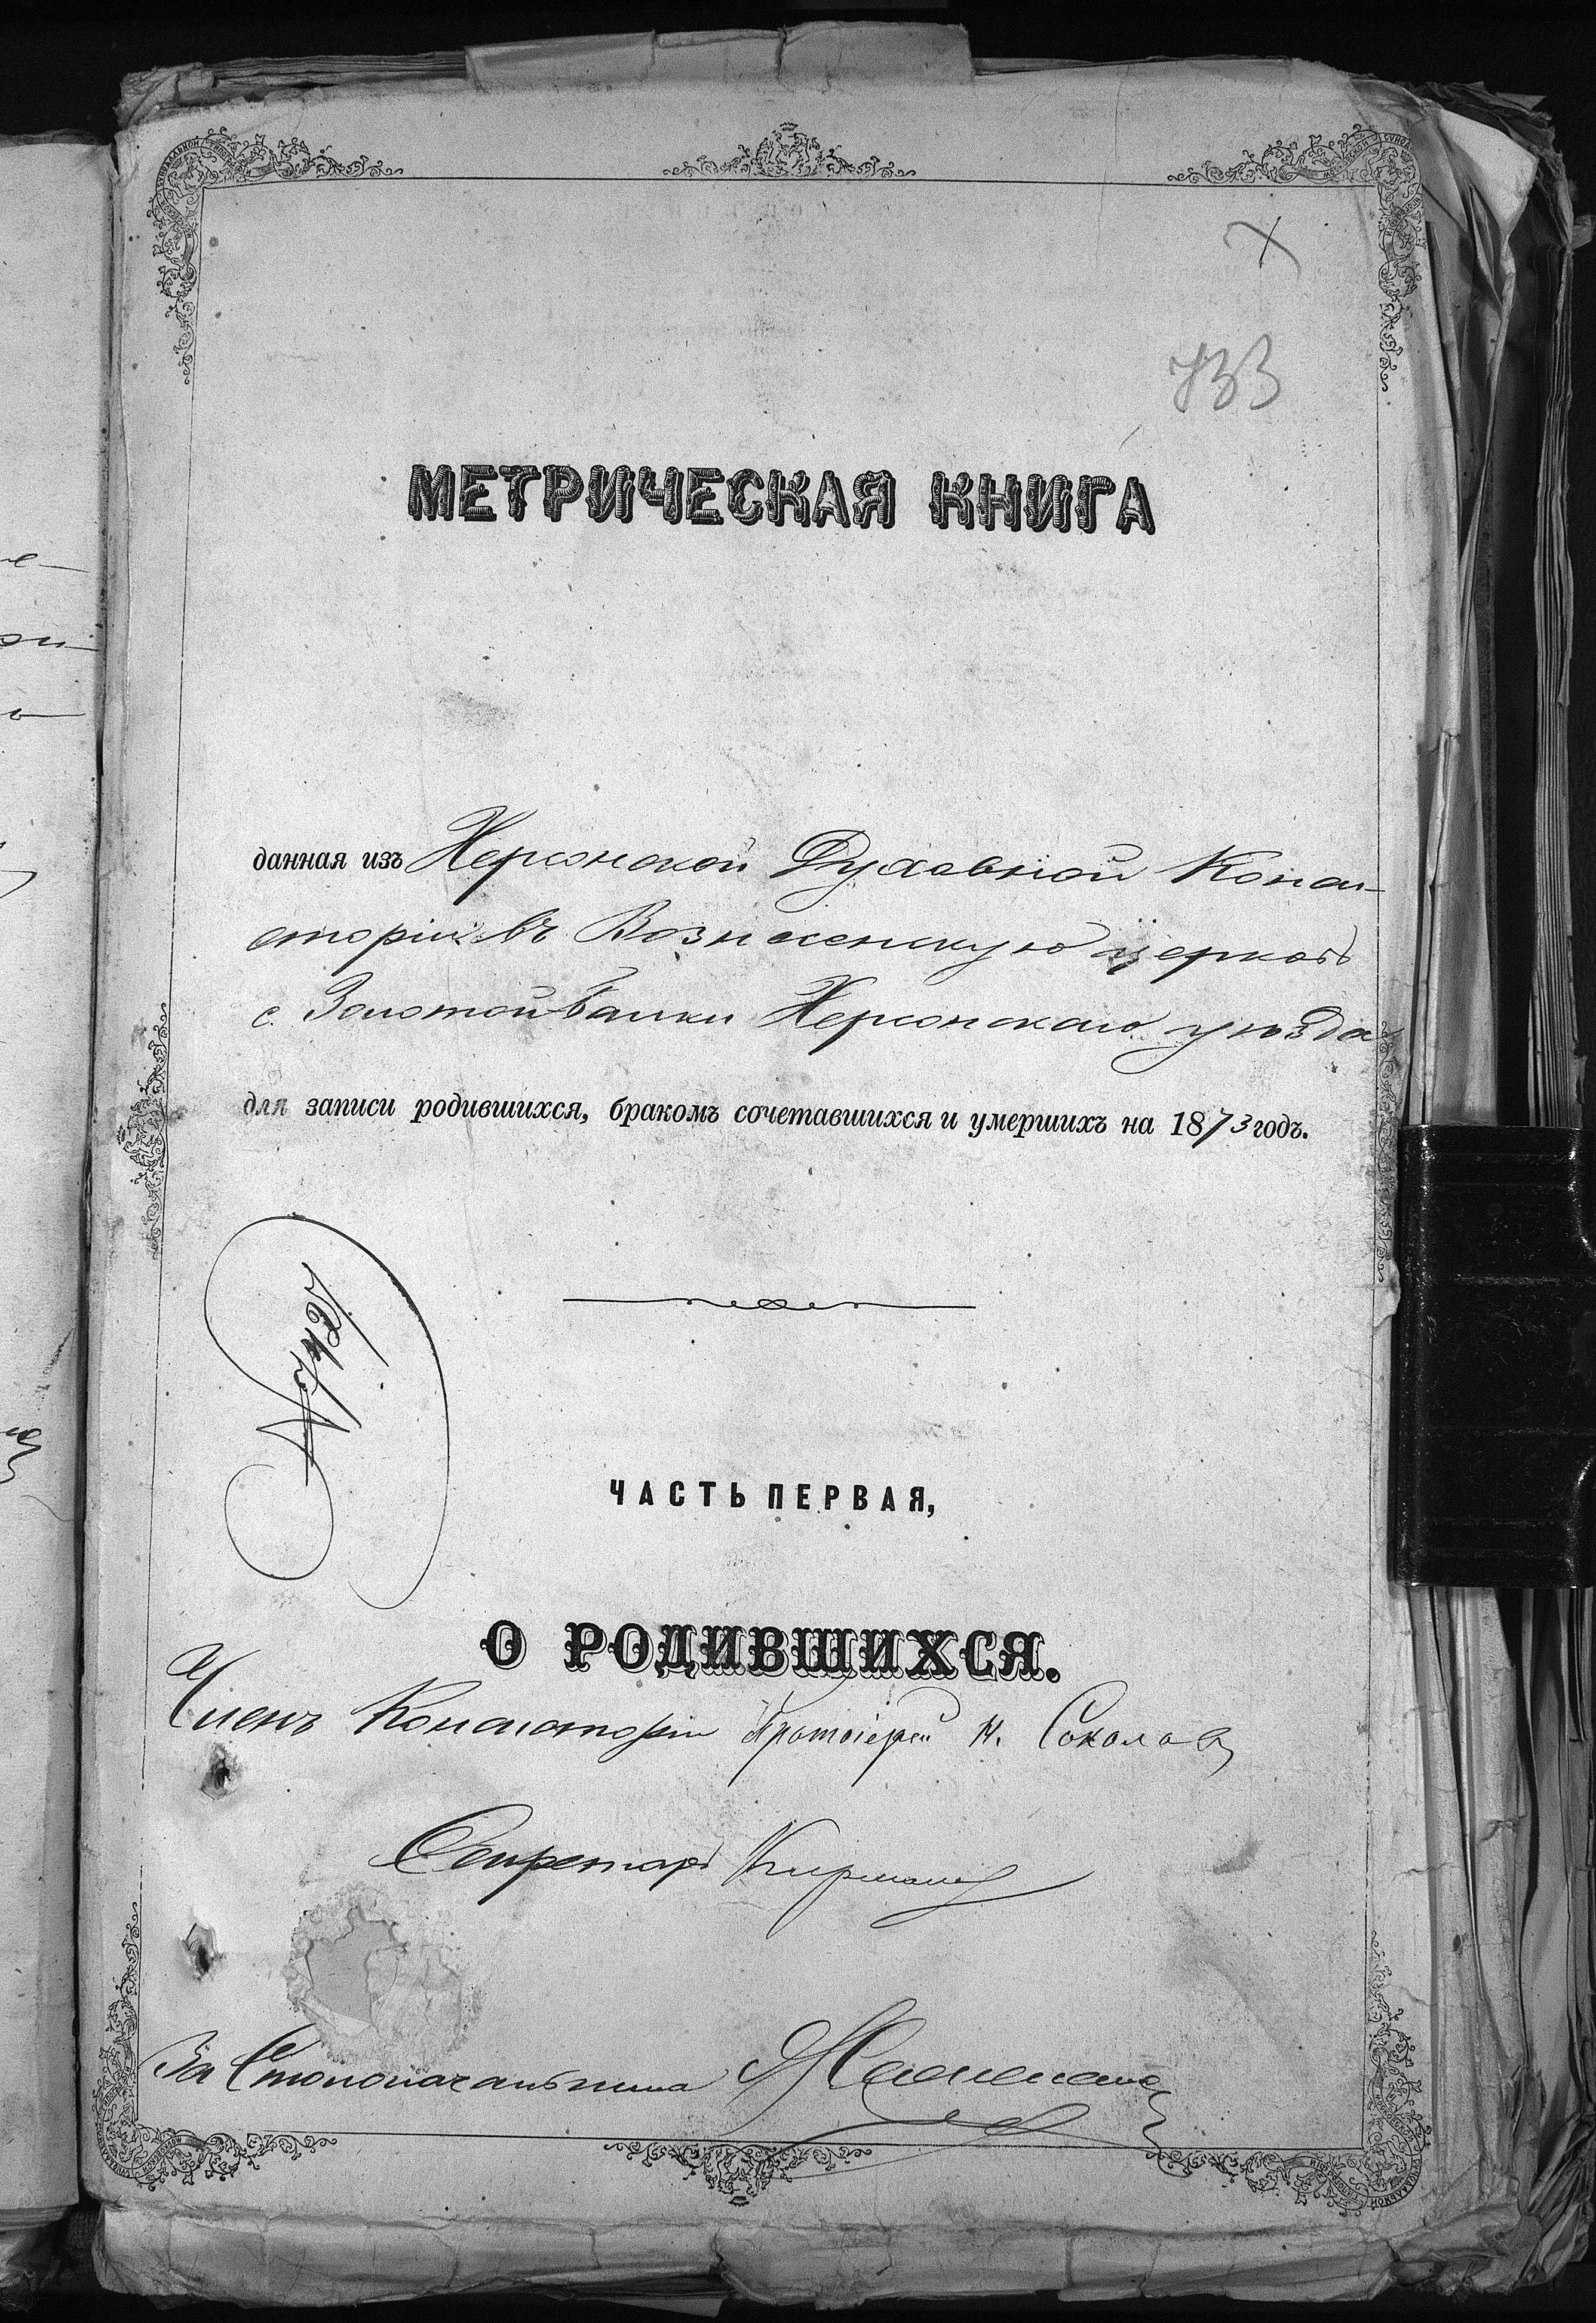 733
МЕТРИЧЕСКАЯ КНИГА
данная изъ Херсонской Духовной Конси-
сторіи въ Вознесенскую церковь
с. Золотой Балки Херсонскаго уѣзда
для записи родившихся, бракомъ сочетавшихся и умершихъ на 1873 годъ.
ЧАСТЬ ПЕРВАЯ,
О РОДИВШИХСЯ.
Членъ Консисторіи Протоіерей Н. Соколовъ
Секретарь
За Столоначальника